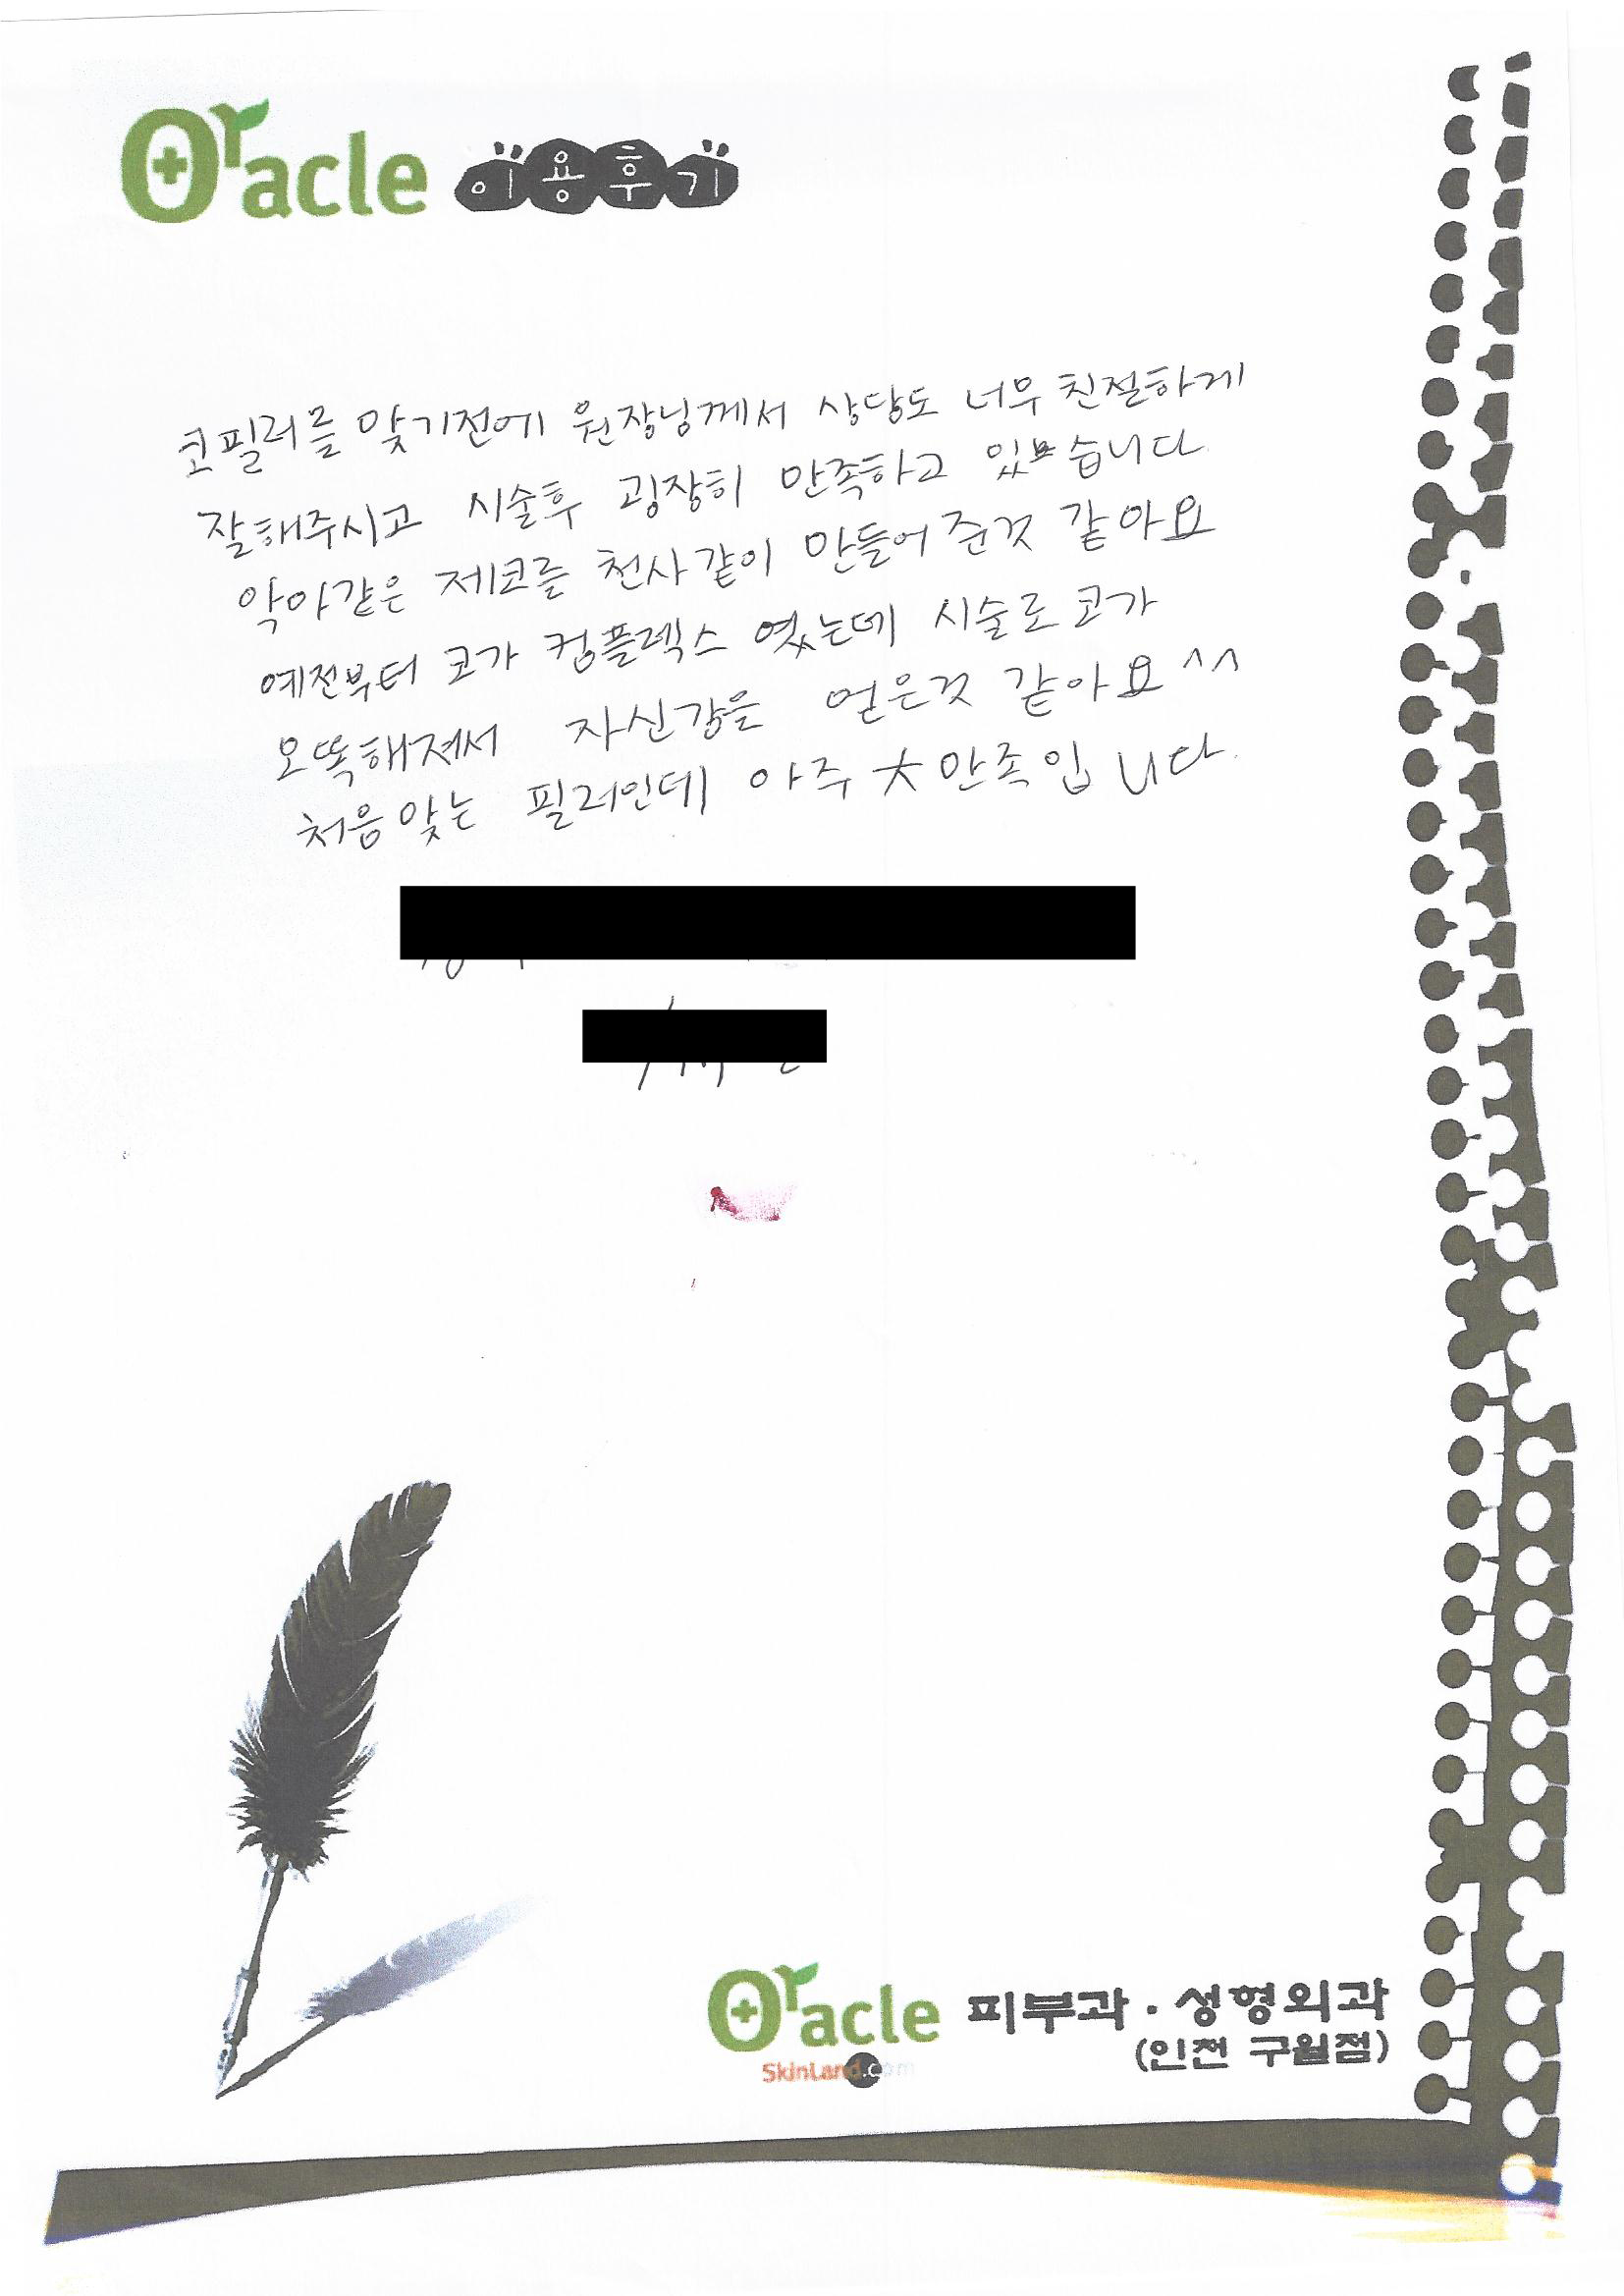 Oracle 이용후기
코필러를 맞기전에 원장님께서 상담도 너무 친절하게
잘해주시고 시술후 굉장히 만족하고 있습니다
악마같은 제코를 천사같이 만들어준것 같아요
예전부터 코가 컴플렉스 였는데 시술로 코가
오똑해져서 자신감을 얻은것 같아요^^
처음맞는 필러인데 아주 大만족입니다.
Oracle 피부과·성형외과
SkinLand.com (인천 구월점)